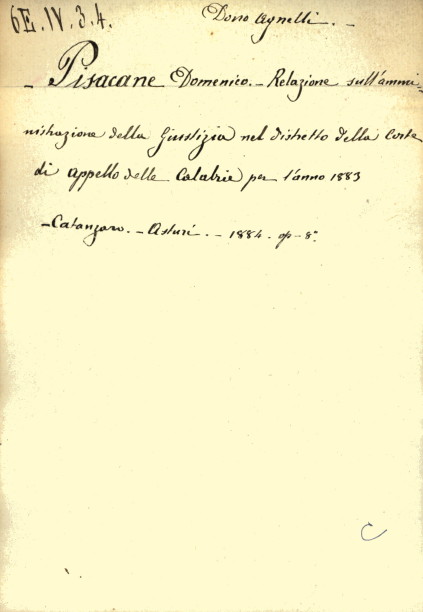 6E.IV.3.4.
Dono Agnelli. -
- Pisacane Domenico. - Relazione sull'ammi=
nistrazione della Giustizia nel distretto della Corte
di appello delle Calabrie per l'anno 1883
- Catanzaro. - Asturi. - 1884. op - 8°.
C